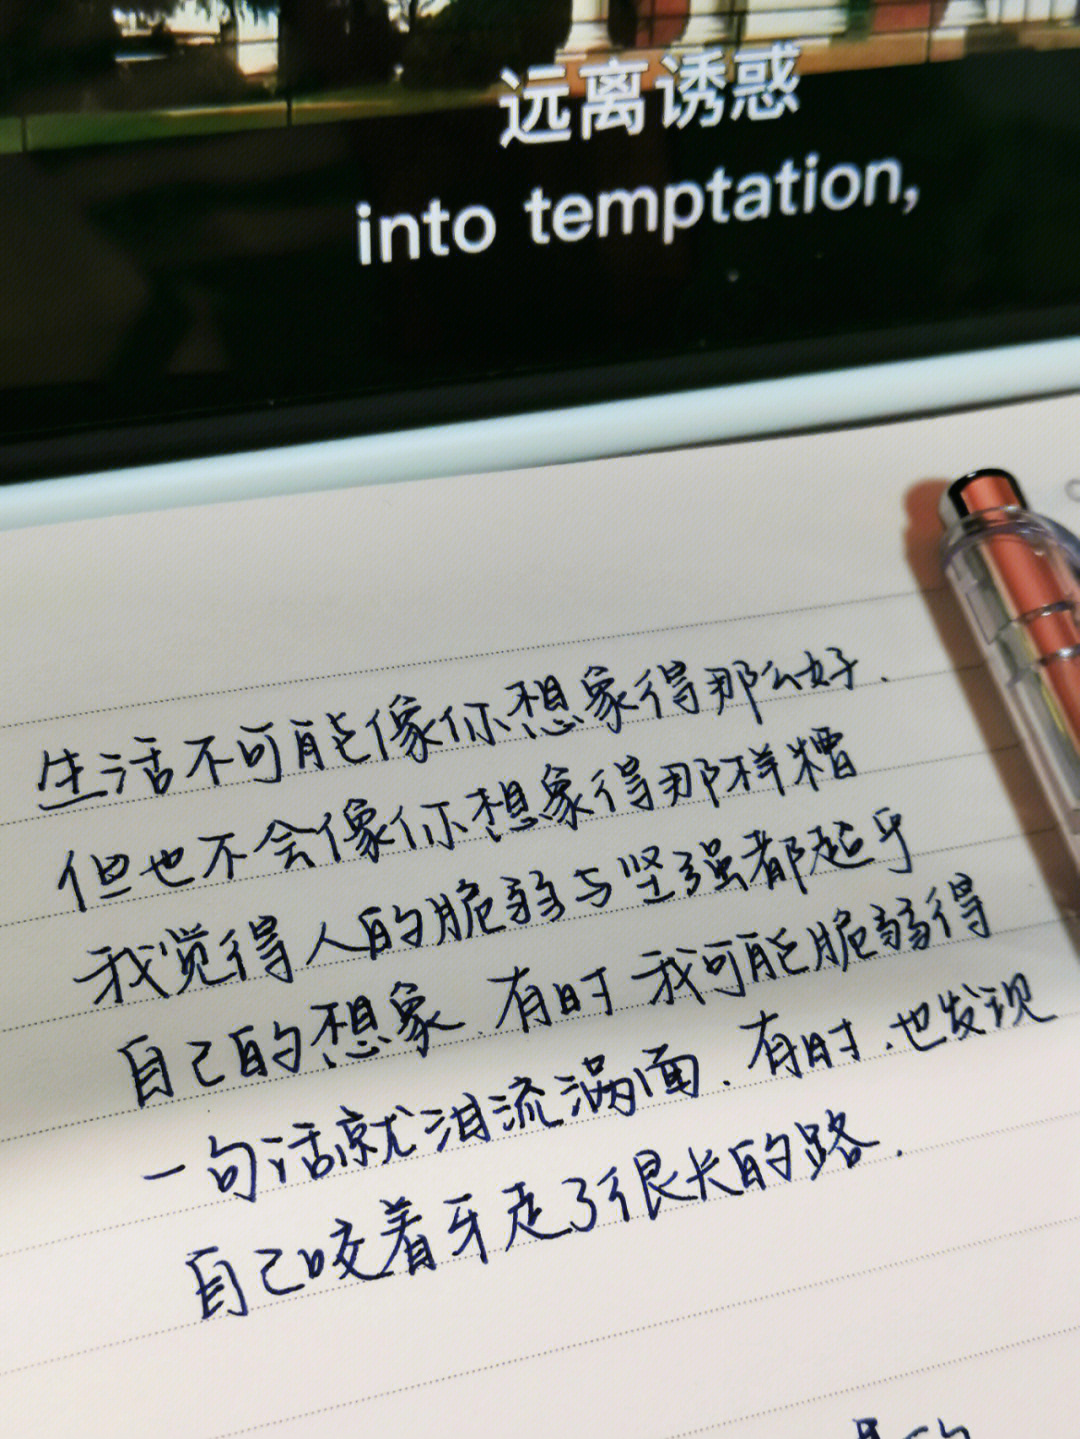 远离诱惑
into temptation,
生活不可能像你想象得那么好.
但也不会像你想象得那样糟
我觉得人的脆弱与坚强都超乎
自己的想象.有时我可能脆弱得
一句话就泪流满面.有时.也发现
自己咬着牙走了很长的路.